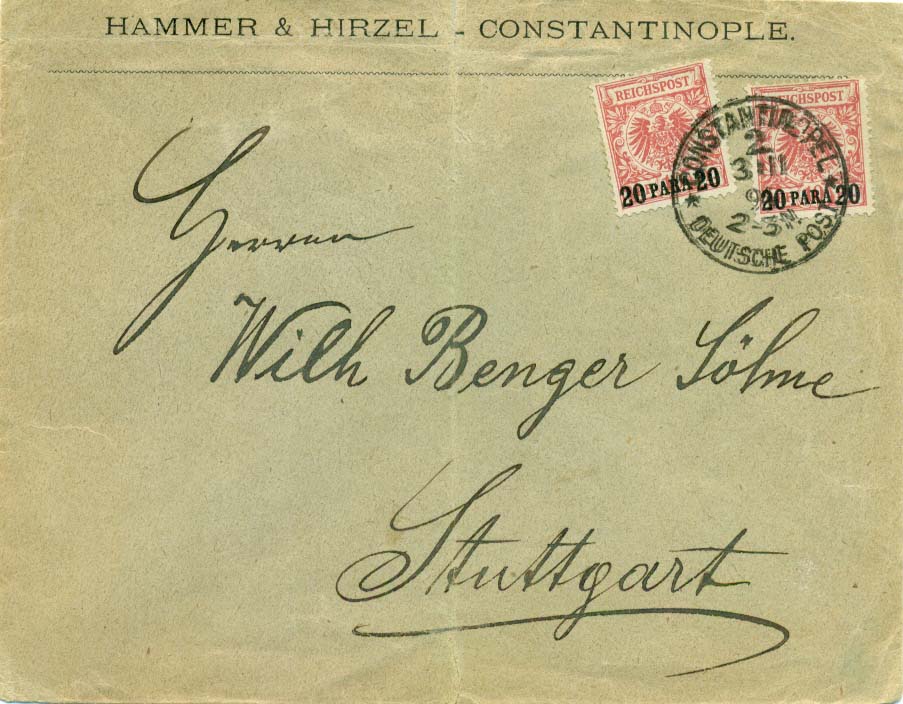 HAMMER & HIRZEL - CONSTANTINOPLE.
REICHSPOST
20 PARA 20
REICHSPOST
20 PARA 20
CONSTANTINOPEL
2
3 11
2-3N.
DEUTSCHE POST
Herren
Wilh Benger Söhne
Stuttgart